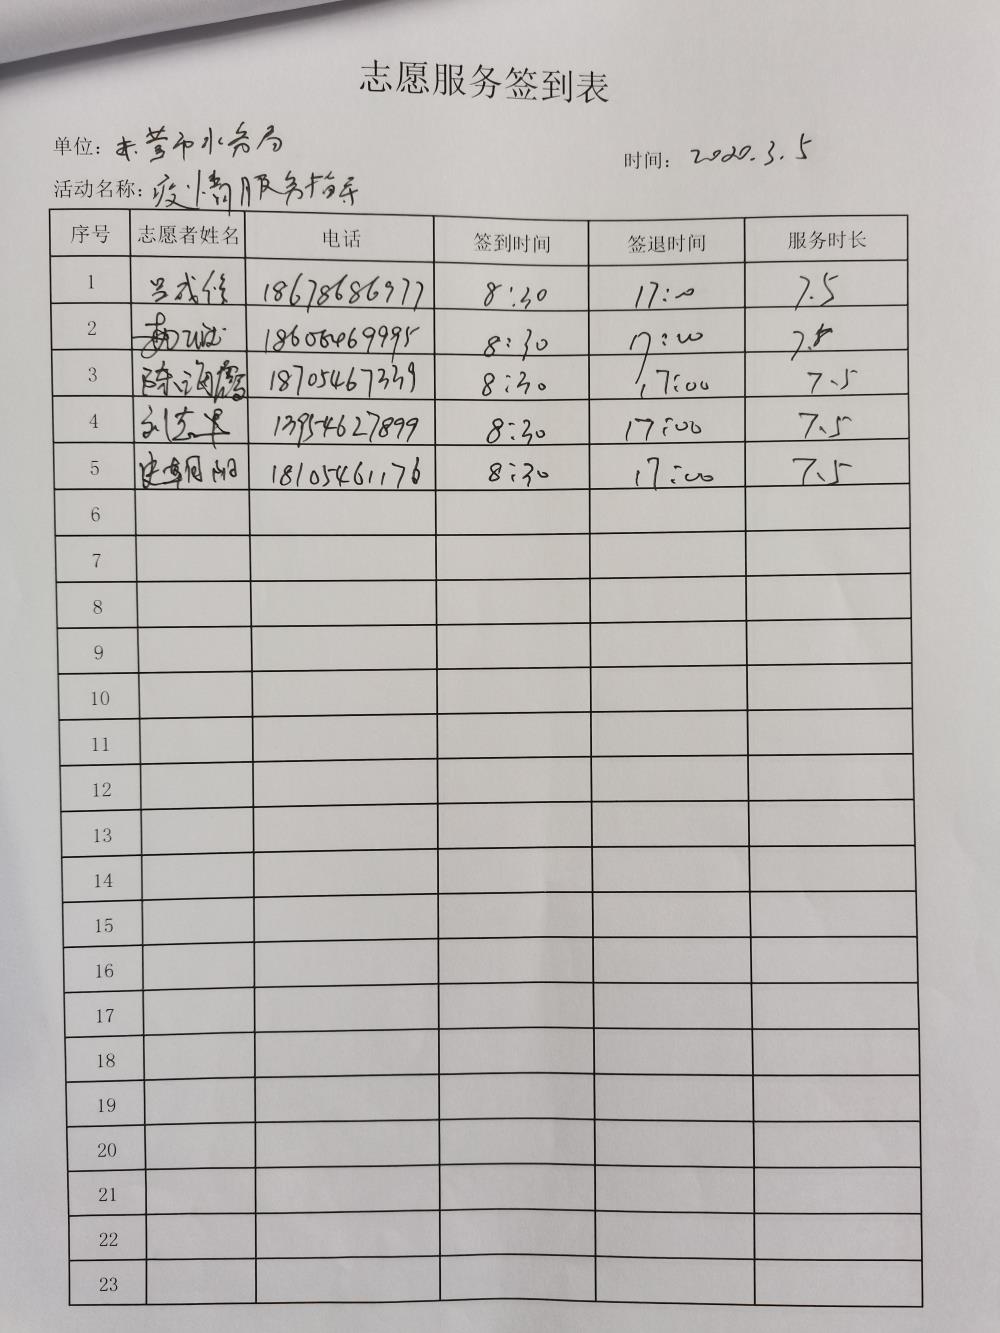 志愿服务签到表
单位：东营市水务局
时间：2020.3.5
活动名称：疫情服务指导
序号 志愿者姓名 电话 签到时间 签退时间 服务时长
1 18678686977 8:30 17:00 7.5
2 18606469995 8:30 17:00 7.5
3 陈海霞 18705467339 8:30 17:00 7.5
4 刘志军 13954627899 8:30 17:00 7.5
5 18105461176 8:30 17:00 7.5
6
7
8
9
10
11
12
13
14
15
16
17
18
19
20
21
22
23